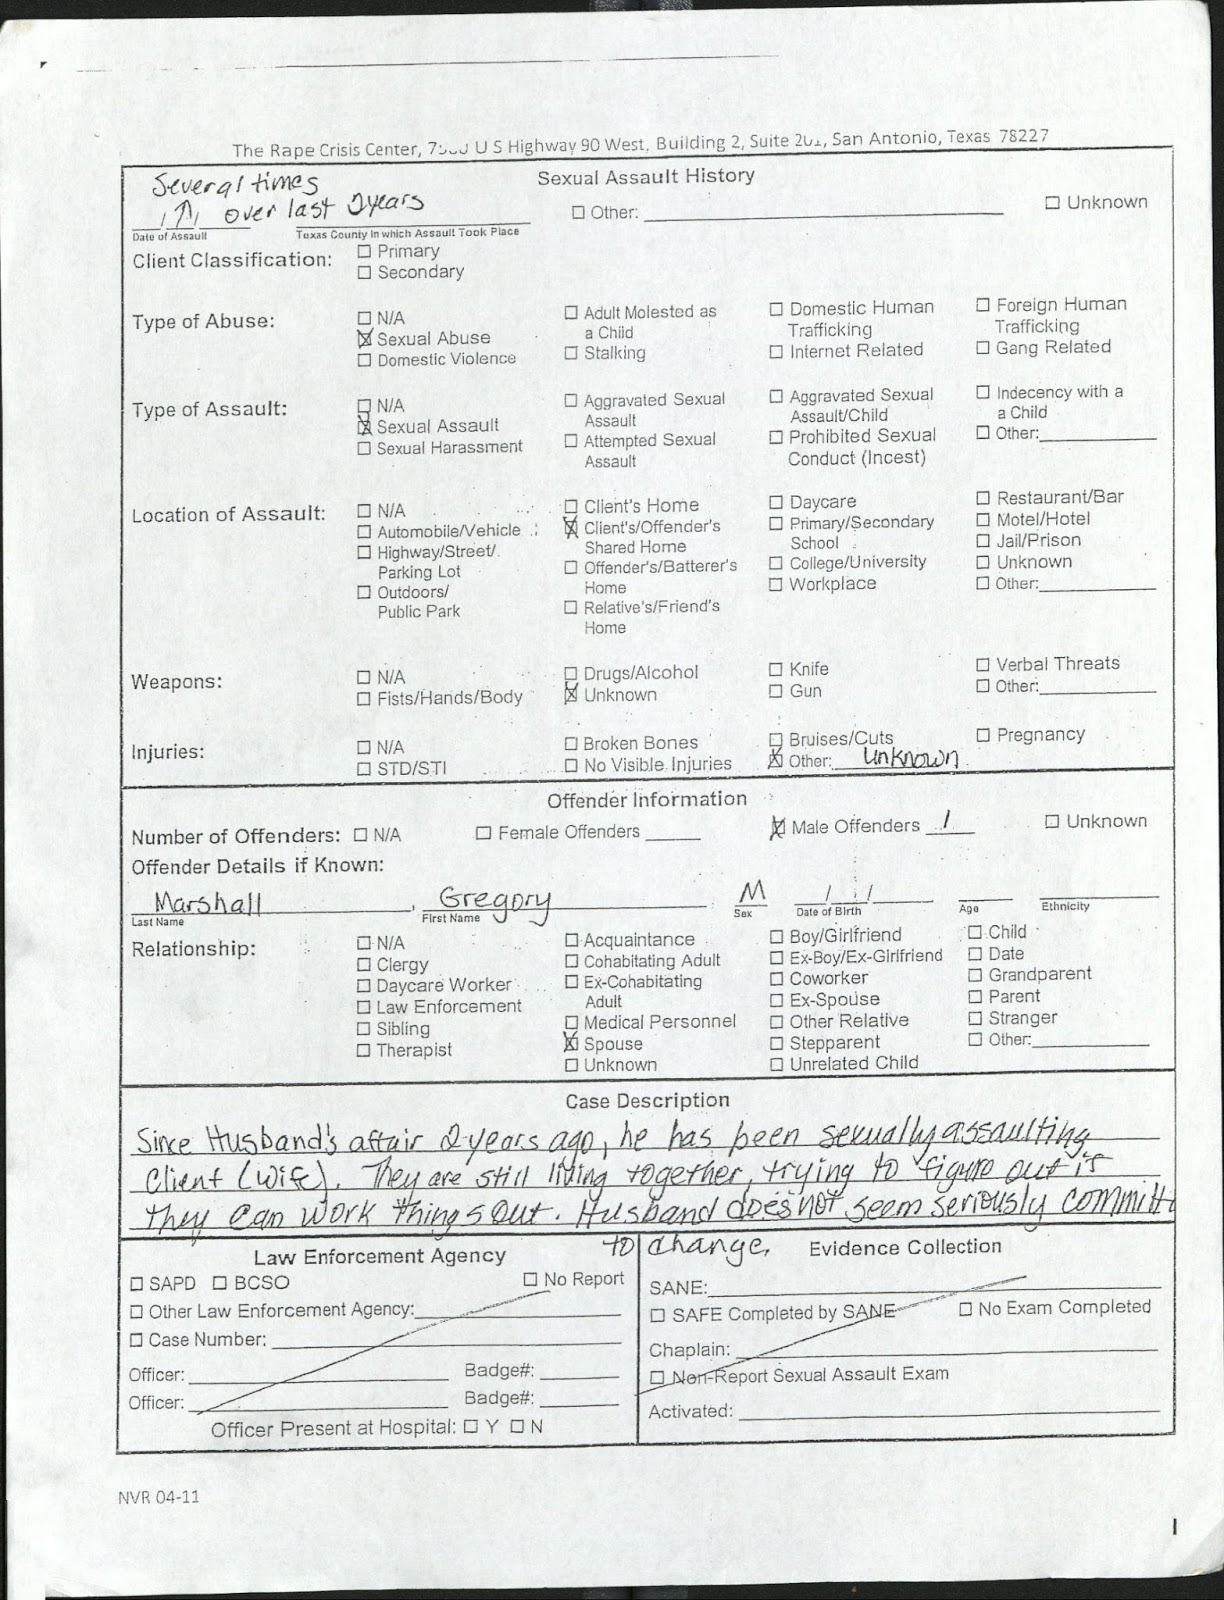 The Rape Crisis Center, U S Highway 90 West, Building 2, Suite San Antonio, Texas 78227
Several times
Sexual Assault History
over last 2 years
☐ Other: ☐ Unknown
Date of Assault Texas County In which Assault Took Place
Client Classification: ☐ Primary
☐ Secondary
Type of Abuse: ☐ N/A ☐ Adult Molested as ☐ Domestic Human ☐ Foreign Human
a Child Trafficking Trafficking
☒ Sexual Abuse ☐ Stalking ☐ Internet Related ☐ Gang Related
☐ Domestic Violence
Type of Assault: ☐ N/A ☐ Aggravated Sexual ☐ Aggravated Sexual ☐ Indecency with a
Assault Assault/Child a Child
☒ Sexual Assault ☐ Attempted Sexual ☐ Prohibited Sexual ☐ Other:
☐ Sexual Harassment Assault Conduct (Incest)
Location of Assault: ☐ N/A ☐ Client's Home ☐ Daycare ☐ Restaurant/Bar
☐ Automobile/Vehicle ☒ Client's/Offender's ☐ Primary/Secondary ☐ Motel/Hotel
☐ Highway/Street/ Shared Home School ☐ Jail/Prison
Parking Lot ☐ Offender's/Batterer's ☐ College/University ☐ Unknown
☐ Outdoors/ Home ☐ Workplace ☐ Other:
Public Park ☐ Relative's/Friend's
Home
Weapons: ☐ N/A ☐ Drugs/Alcohol ☐ Knife ☐ Verbal Threats
☐ Fists/Hands/Body ☒ Unknown ☐ Gun ☐ Other:
Injuries: ☐ N/A ☐ Broken Bones ☐ Bruises/Cuts ☐ Pregnancy
☐ STD/STI ☐ No Visible Injuries ☒ Other: Unknown
Offender Information
Number of Offenders: ☐ N/A ☐ Female Offenders ☒ Male Offenders 1 ☐ Unknown
Offender Details if Known:
Marshall, Gregory M / /
Last Name First Name Sex Date of Birth Age Ethnicity
Relationship: ☐ N/A ☐ Acquaintance ☐ Boy/Girlfriend ☐ Child
☐ Clergy ☐ Cohabitating Adult ☐ Ex-Boy/Ex-Girlfriend ☐ Date
☐ Daycare Worker ☐ Ex-Cohabitating ☐ Coworker ☐ Grandparent
☐ Law Enforcement Adult ☐ Ex-Spouse ☐ Parent
☐ Sibling ☐ Medical Personnel ☐ Other Relative ☐ Stranger
☐ Therapist ☒ Spouse ☐ Stepparent ☐ Other:
☐ Unknown ☐ Unrelated Child
Case Description
Since Husband's affair 2 years ago, he has been sexually assaulting
Client (wife). They are still living together, trying to figure out if
they can work things out. Husband does not seem seriously committ
to change.
Law Enforcement Agency
☐ SAPD ☐ BCSO ☐ No Report
☐ Other Law Enforcement Agency:
☐ Case Number:
Officer: Badge#:
Officer: Badge#:
Officer Present at Hospital: ☐ Y ☐ N
Evidence Collection
SANE:
☐ SAFE Completed by SANE ☐ No Exam Completed
Chaplain:
☐ Non-Report Sexual Assault Exam
Activated:
NVR 04-11